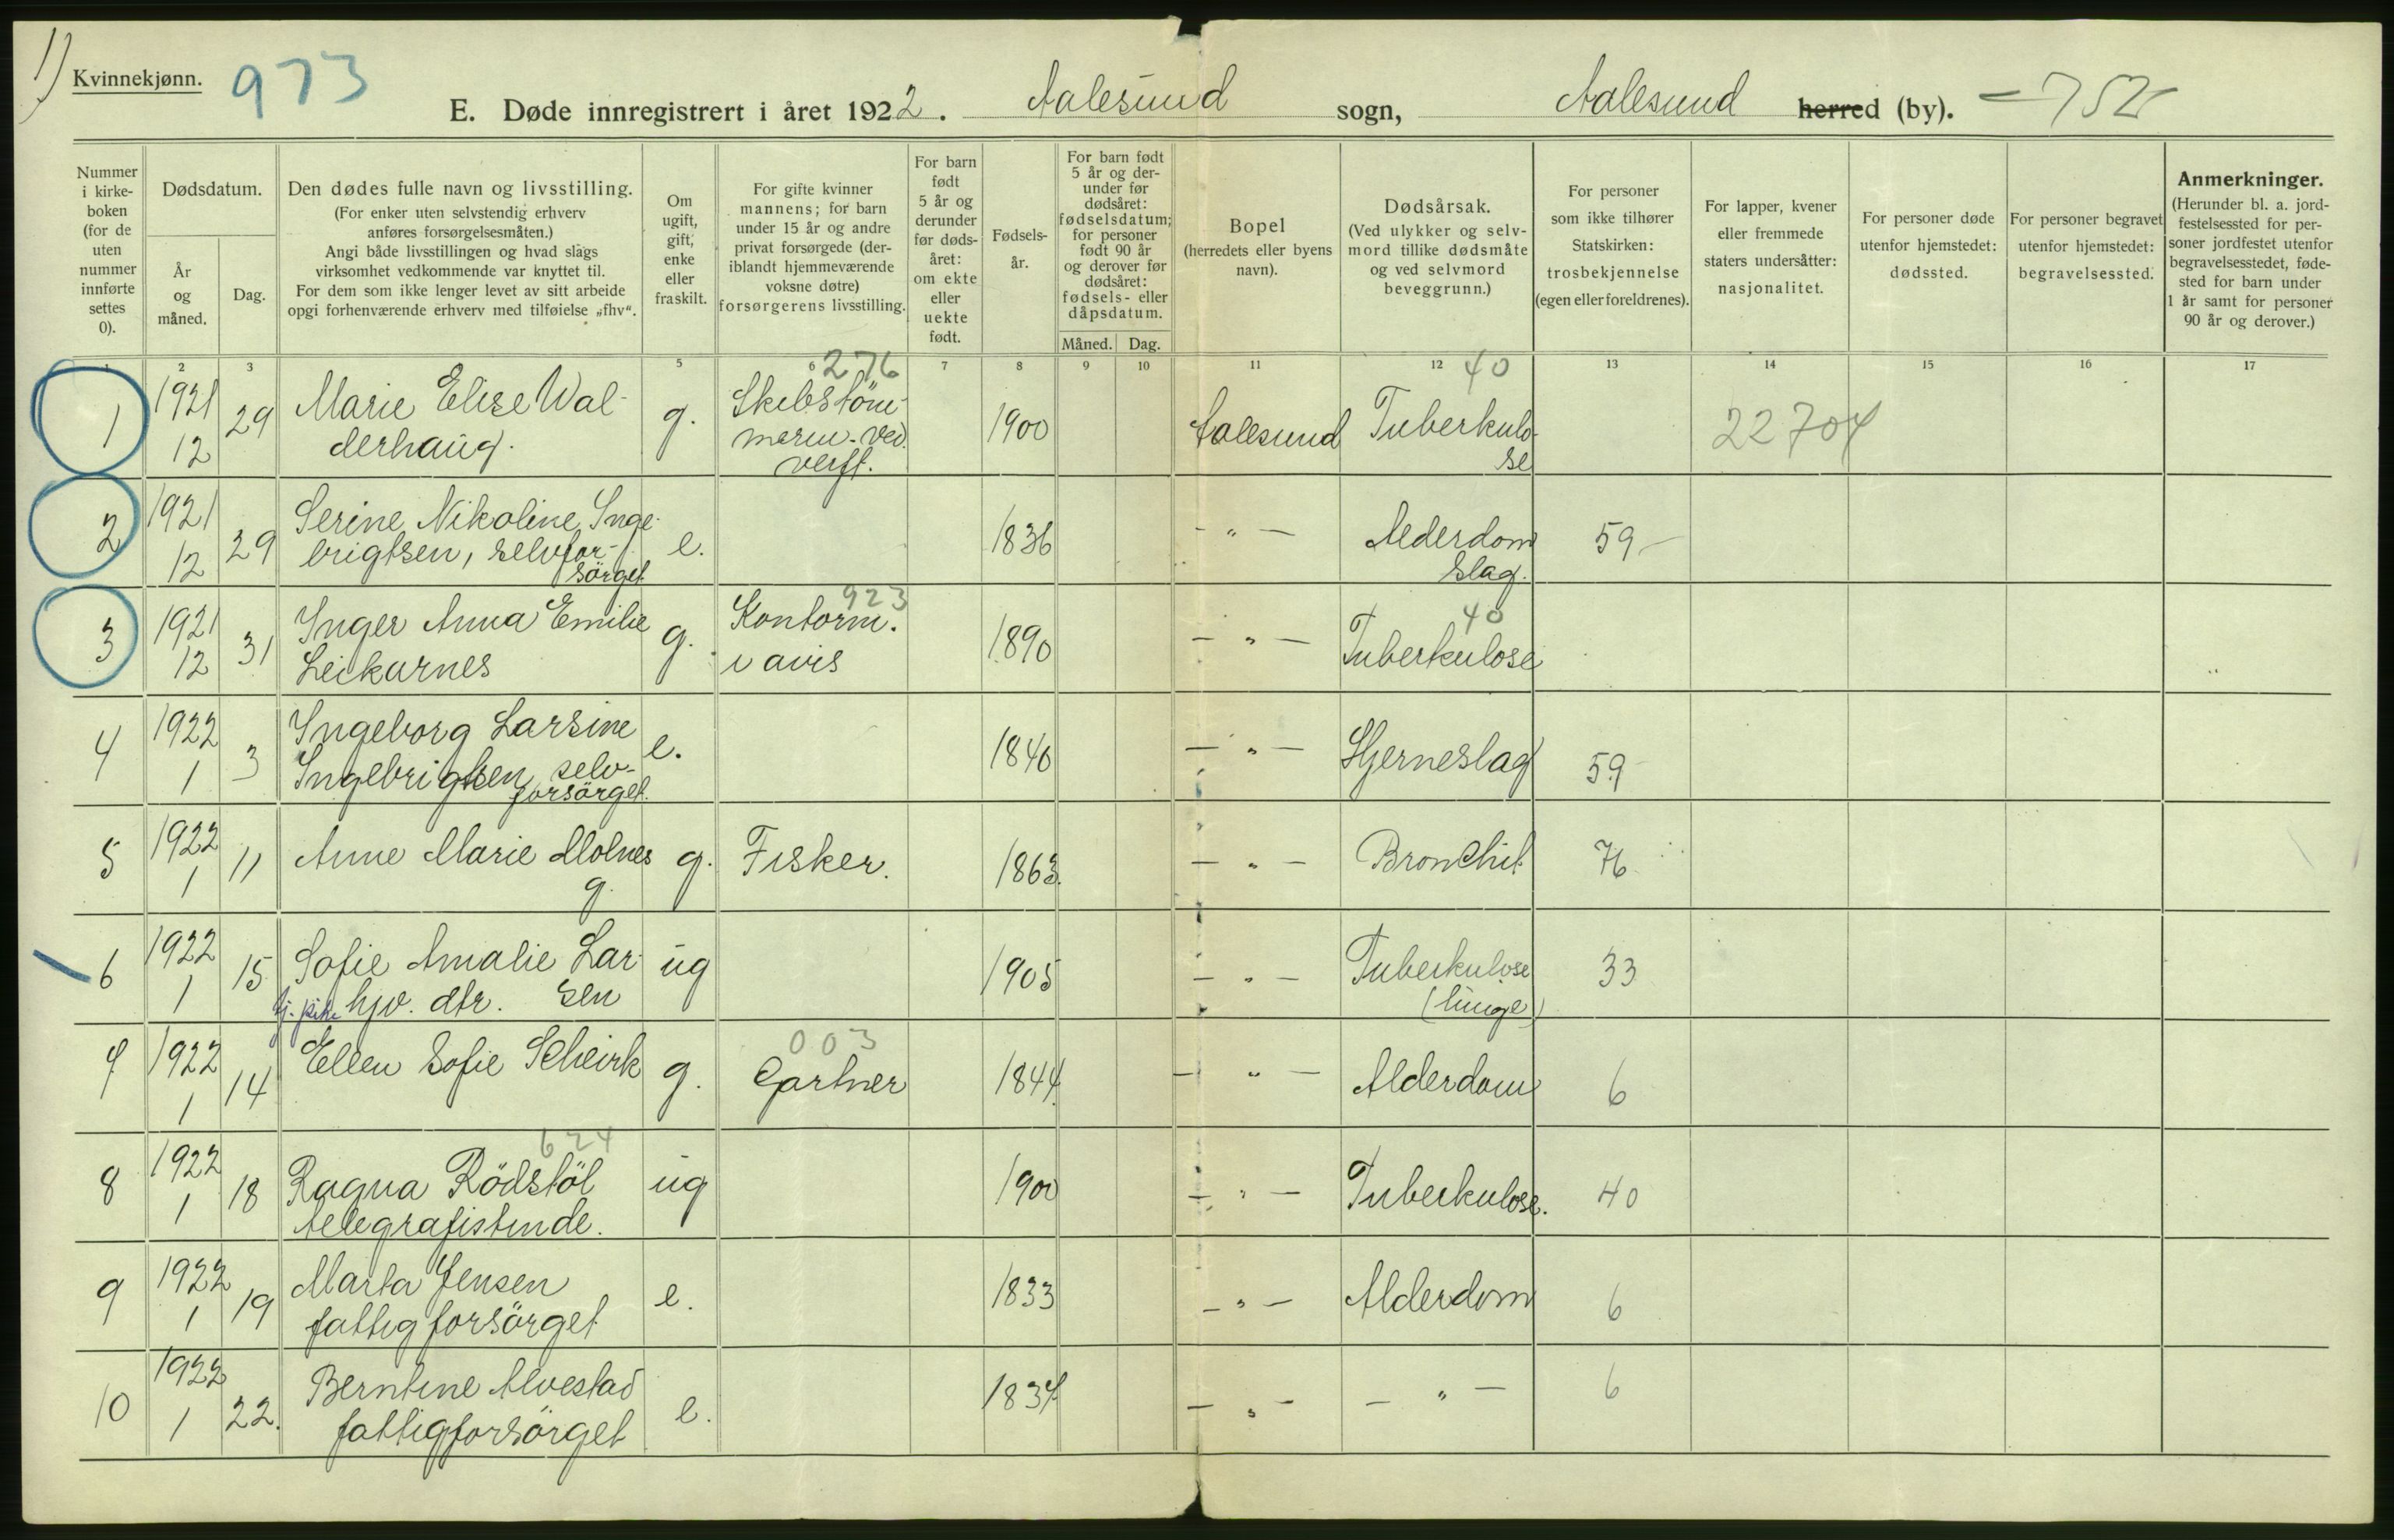 1)
Kvinnekjønn.
973
E. Døde innregistrert i året 1922. Aalesund sogn, Aalesund herred (by). - 752
Nummer i kirke-boken (for de uten nummer innførte settes 0).
Dødsdatum.
År og måned.
Dag.
Den dødes fulle navn og livsstilling.
(For enker uten selvstendig erhverv
anføres forsørgelsesmåten.)
Angi både livsstillingen og hvad slags
virksomhet vedkommende var knyttet til.
For dem som ikke lenger levet av sitt arbeide
opgi forhenværende erhverv med tilføielse „fhv“.
Om ugift, gift, enke eller fraskilt.
For gifte kvinner
mannens; for barn
under 15 år og andre
privat forsørgede (der-
iblandt hjemmeværende
voksne døtre)
forsørgerens livsstilling.
For barn født 5 år og derunder før døds-året: om ekte eller uekte født.
Fødsels-år.
For barn født
5 år og der-
under før
dødsåret:
fødselsdatum;
for personer
født 90 år
og derover før
dødsåret:
fødsels- eller
dåpsdatum.
Måned. Dag.
Bopel
(herredets eller byens
navn).
Dødsårsak.
(Ved ulykker og selv-
mord tillike dødsmåte
og ved selvmord
beveggrunn.)
For personer
som ikke tilhører
Statskirken:
trosbekjennelse
(egen eller foreldrenes).
For lapper, kvener
eller fremmede
staters undersåtter:
nasjonalitet.
For personer døde
utenfor hjemstedet:
dødssted.
For personer begravet
utenfor hjemstedet:
begravelsessted.
Anmerkninger.
(Herunder bl. a. jord-
festelsessted for per-
soner jordfestet utenfor
begravelsesstedet, føde-
sted for barn under
1 år samt for personer
90 år og derover.)
1 2 3 5 6 7 8 9 10 11 12 13 14 15 16 17
1 1921 12 29 Marie Elise Wal-
derhaug. g. 276 Skibstöm-
merm. ved.
verft. 1900 Aalesund 40 Tuberkulo-
se 22704
2 1921 12 29 Serine Nikoline Inge-
brigtsen, selvfor-
sörget e. 1836 - „ - Alderdom
Slag. 59 -
3 1921 12 31 Inger Anna Emilie
Leikarnes g. 923 Kontorm.
i avis 1890 - „ - 40 Tuberkulose
4 1922 1 3 Ingeborg Larsine
Ingebrigtsen selv-
forsörget. e. 1840 - „ - Hjerneslag 59 -
5 1922 1 11 Anne Marie Molnes
g. g. Fisker. 1863. - „ - Bronchit 76
6 1922 1 15 Sofie Amalie Lar-
tj. pike hjv. dtr. sen ug 1905 - „ - Tuberkulose
(lunge) 33
7 1922 1 14 Ellen Sofie Scheirk g. 003 Gartner 1844. - „ - Alderdom 6
8 1922 1 18 624 Ragna Rödstöl
telegrafistinde. ug 1900 - „ - Tuberkulose. 40
9 1922 1 19 Marta Jensen
fattigforsörget e. 1833 - „ - Alderdom 6
10 1922 1 22. Berntine Alvestad
fattigforsörget e. 1837 - „ - - „ - 6